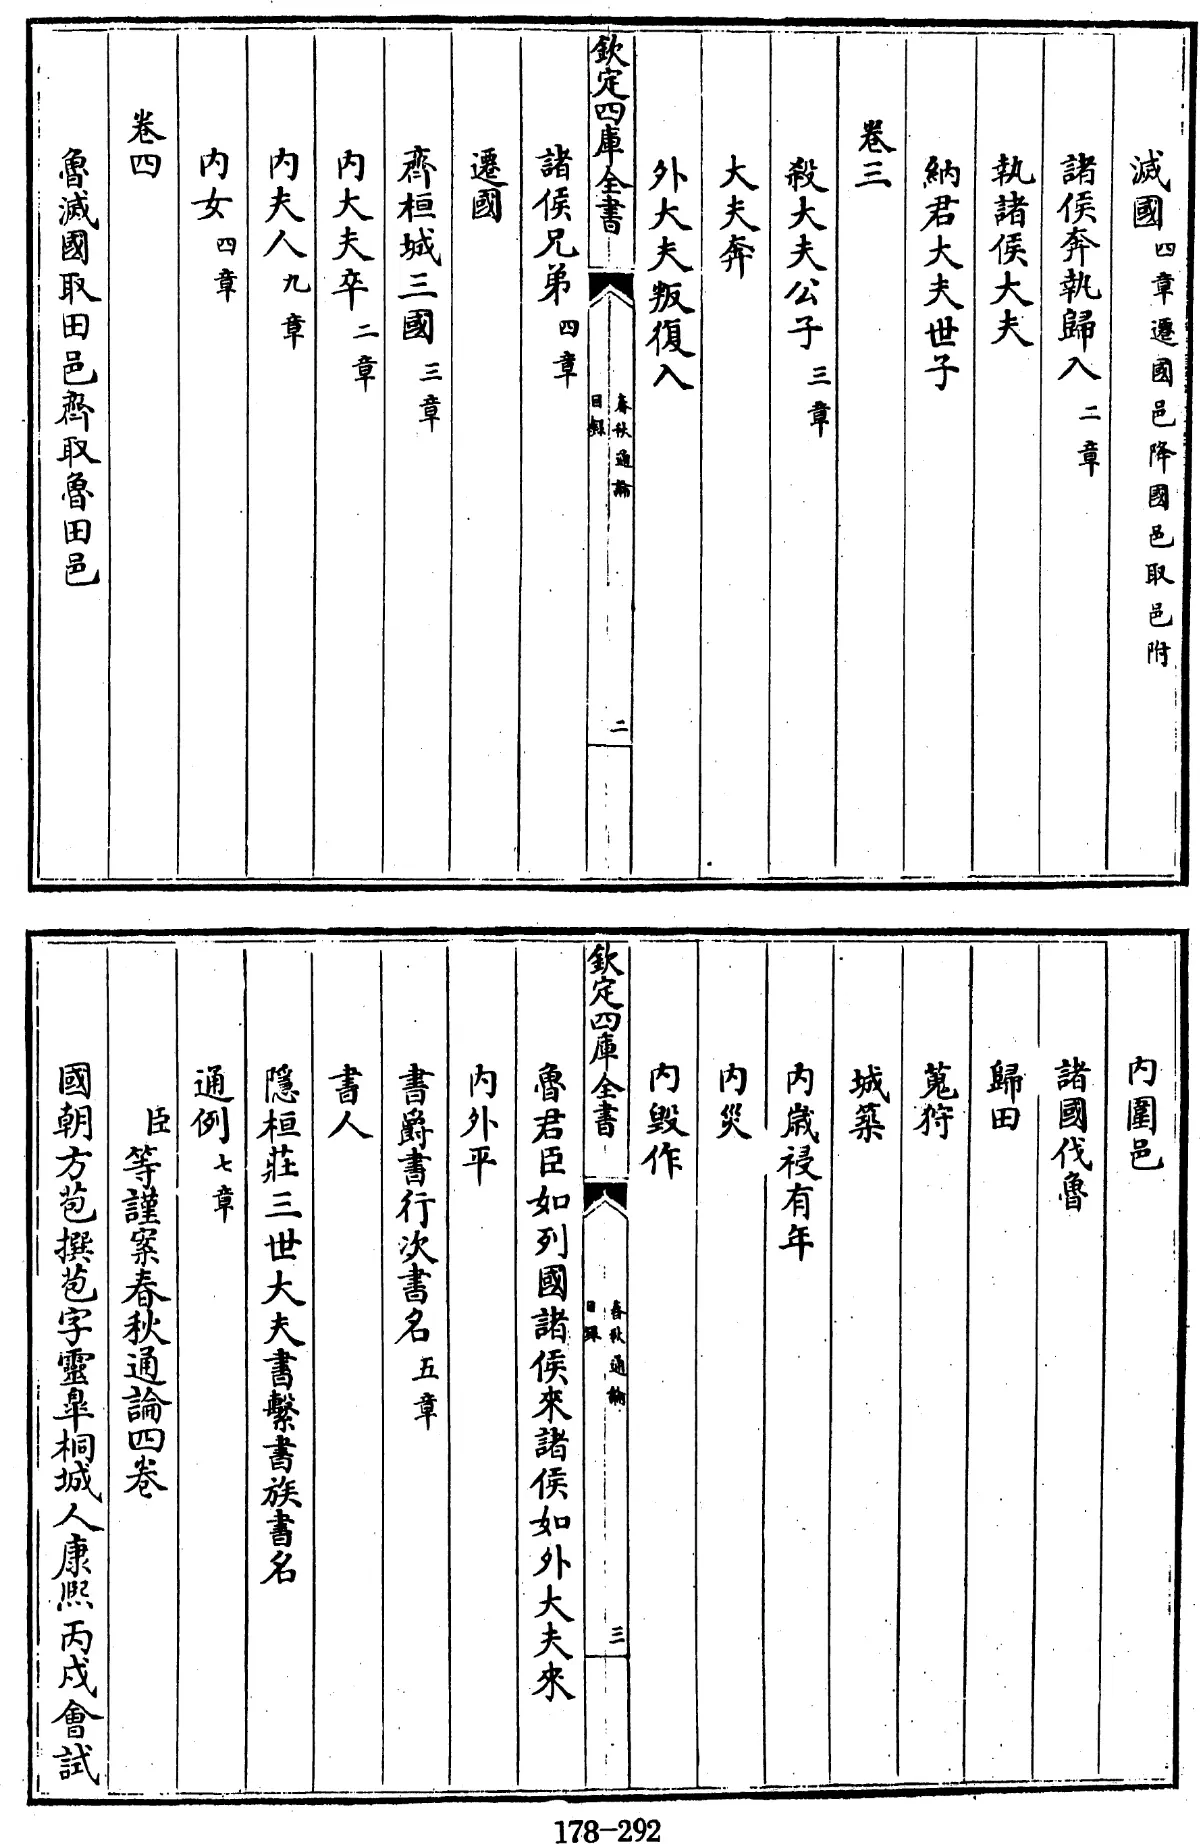 滅國四章遷國邑降國邑取邑附
諸侯奔執歸入二章
執諸侯大夫
納君大夫世子
卷三
殺大夫公子三章
大夫奔
外大夫叛復入
欽定四庫全書
春秋通論
目錄
二
諸侯兄弟四章
遷國
齊桓城三國三章
內大夫卒二章
內夫人九章
內女四章
卷四
魯滅國取田邑齊取魯田邑
內圍邑
諸國伐魯
歸田
蒐狩
城築
內歲祲有年
內災
內毀作
欽定四庫全書
春秋通論
目錄
三
魯君臣如列國諸侯來諸侯如外大夫來
內外平
書爵書行次書名五章
書人
隱桓莊三世大夫書繫書族書名
通例七章
臣等謹案春秋通論四卷
國朝方苞撰苞字靈臯桐城人康熙丙戌會試
178-292